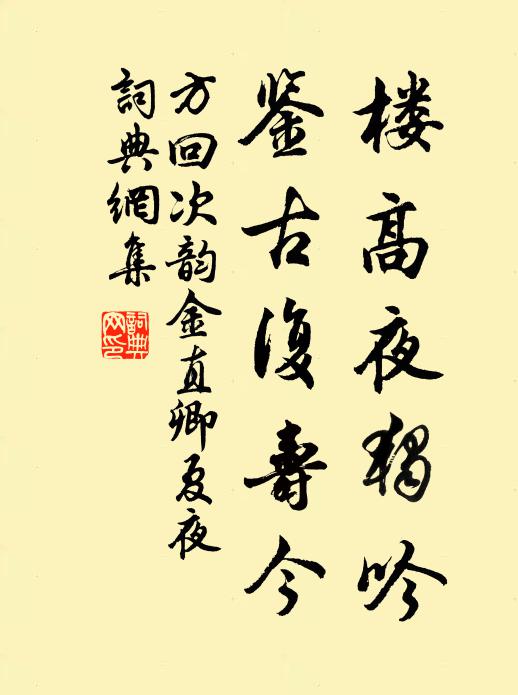 楼高夜独吟
鉴古复寿今
方回次韵金直卿夏夜
詞典網集
詞典网印